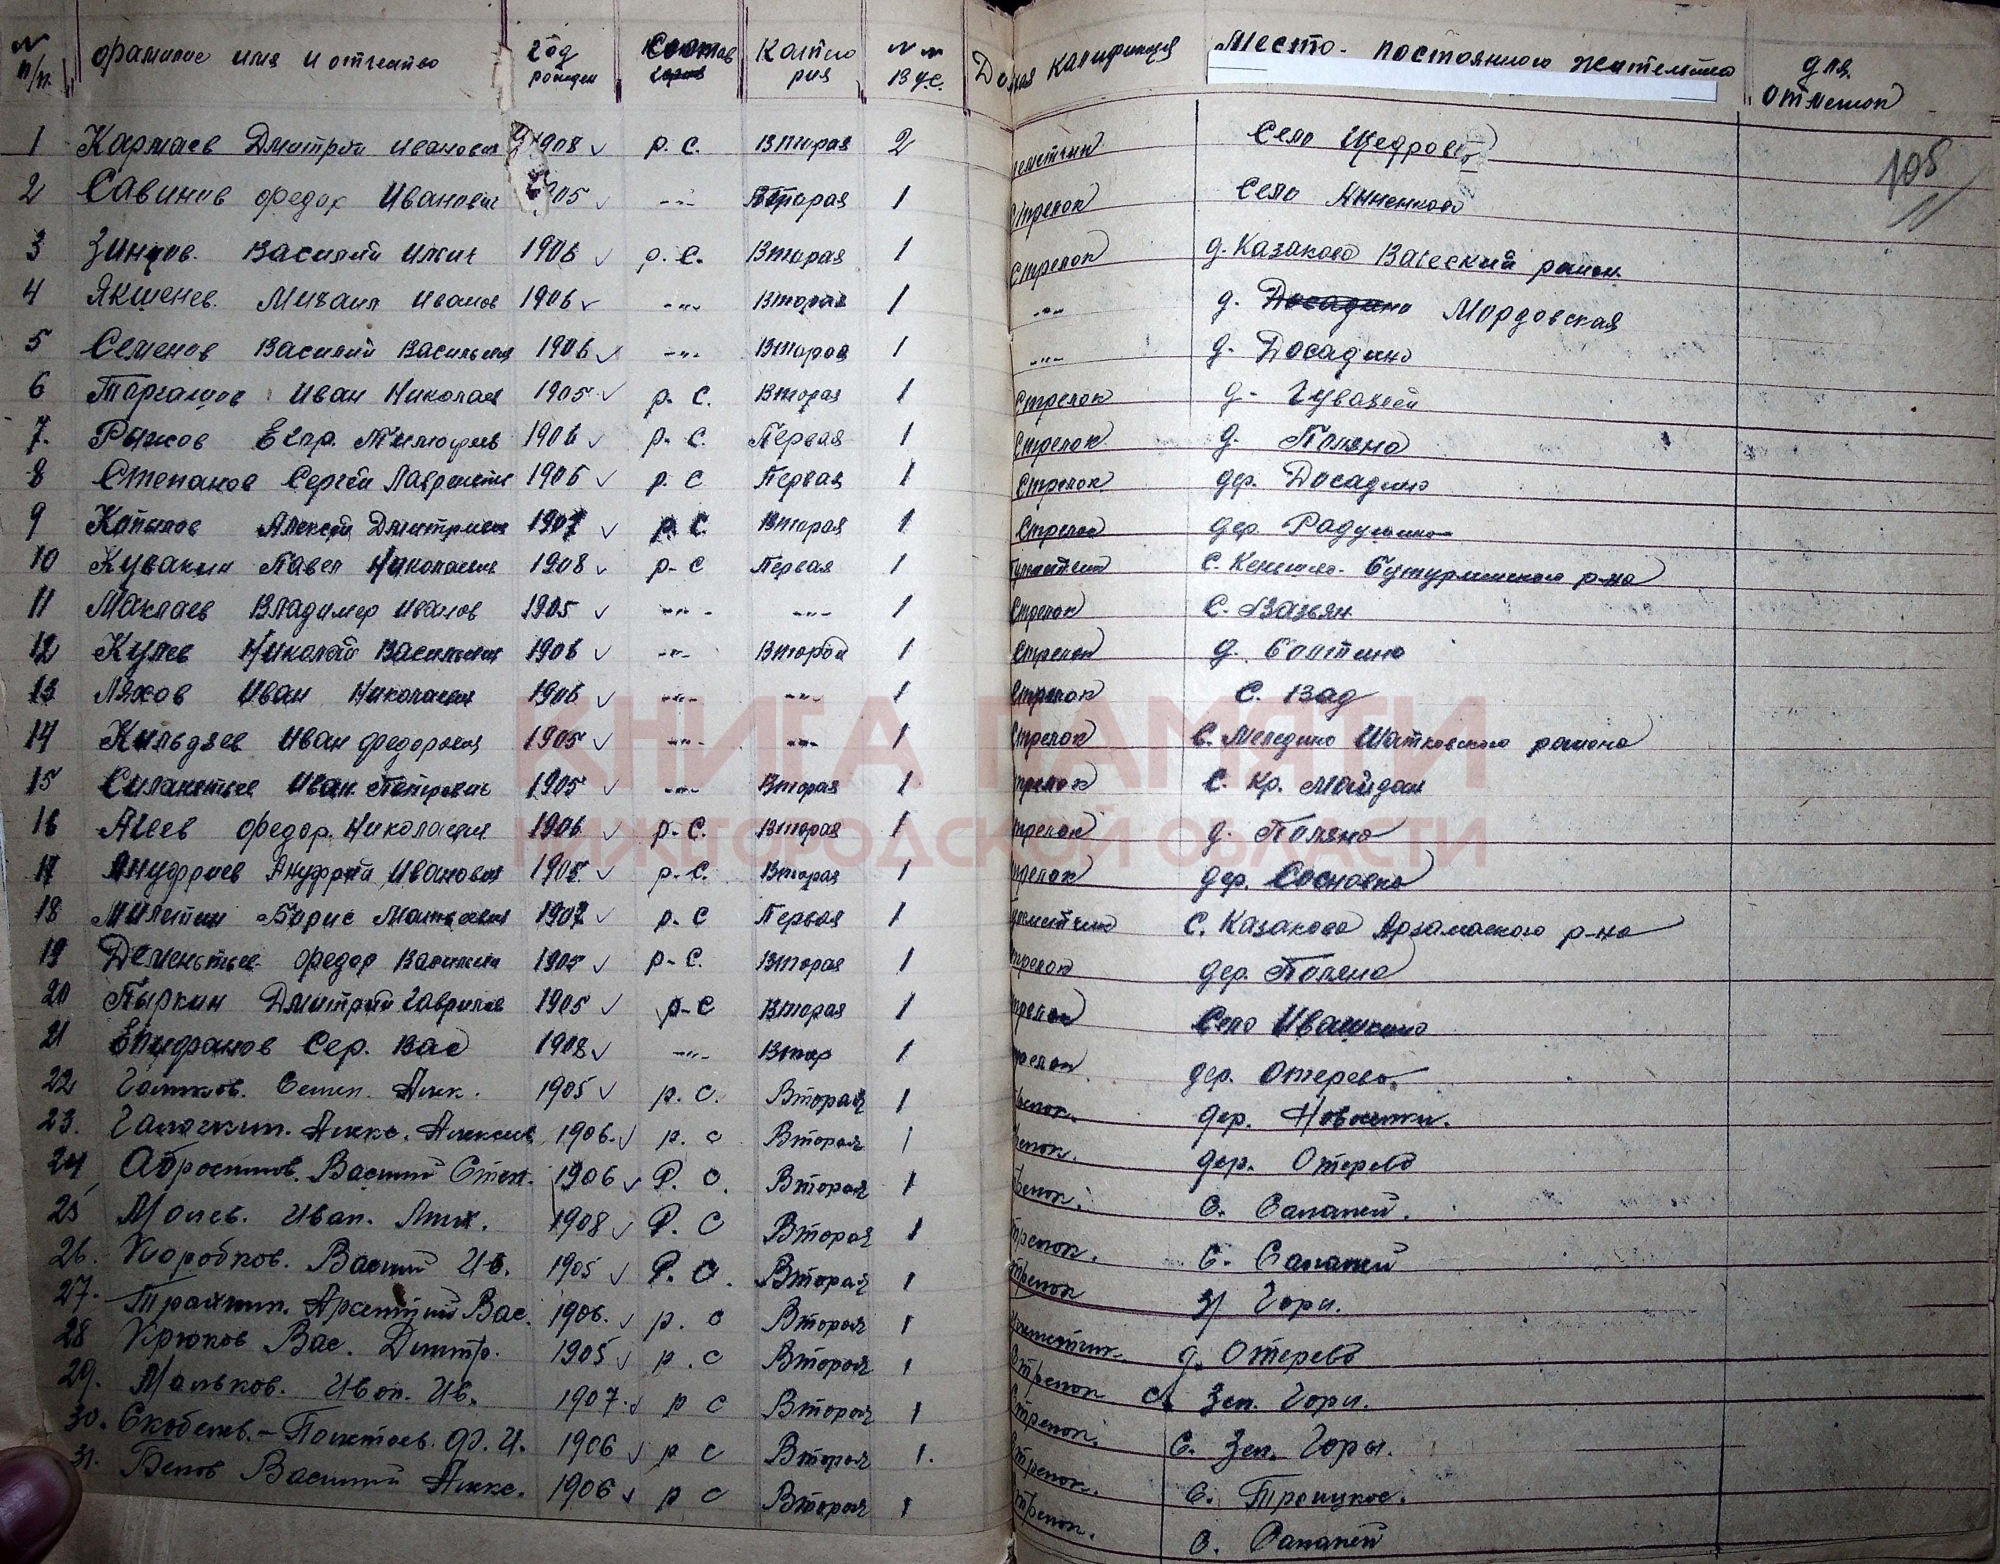 № п/п. фамилие имя и отчество год рожден состав Катего рия №№ ВУС. Должная калификация Место-постоянного жительства для отметок
1 Кармаев Дмитрий Иванович 1908 р.С. Вторая 2 Село Щедровка
108
2 Савинов Федор Иванович 1905 -"- Вторая 1 Стрелок Село Анненково
3 Зинцов. Василий Ильич 1906 р.С. Вторая 1 Стрелок д. Казаково Вачский район
4 Якшенев. Михаил Иванов 1906 -"- Вторая 1 -"- д. Мордовская
5 Семенов Василий Васильевич 1906 -"- Вторая 1 -"- д. Досадино
6 Торгашов Иван Николаев 1905 р.С. Вторая 1 Стрелок д.
7. Рыжов Егор. Тимофеев 1906 р.С. Первая 1 Стрелок д. Поляна
8 Степанов Сергей Лаврентьев 1906 р.С Первая 1 Стрелок дер. Досадино
9 Копылов Алексей Дмитриевич 1907 р.С. Вторая 1 Стрелок дер. Радушино
10 Кувакин Павел Николаевич 1908 р-С Первая 1 С. Бутурлинского р-на
11 Маклаев Владимер Иванов 1905 -"- -"- 1 Стрелок С. Вазьян
12 Кулев Николай Васильевич 1906 -"- Второй 1 Стрелок д.
13 Ляхов Иван Николаевич 1906 -"- -"- 1 Стрелок С. Вад
14 Кильдяев Иван Федорович 1905 -"- -"- 1 Стрелок С. Шатковского района
15 Силантьев Иван Петрович 1905 -"- Вторая 1 Стрелок С. Кр. Майдан
16 Агеев Федор. Николаевич 1906 р-С. Вторая 1 Стрелок д. Поляна
17 Ануфриев Ануфрий Иванович р-С. Вторая 1 Стрелок дер. Сосновка
18 Милетин Борис Матвеевич 1907 р.С Первая 1 С. Казаково Арзамаского р-на
19 Дементьев Федор Васильев 1905 р-С. Вторая 1 Стрелок дер. Поляна
20 Пыркин Дмитрий Гаврилов 1905 р-С Вторая 1 Стрелок Село Ивашкино
21 Епифанов Сер. Вас 1908 -"- Втор 1 Стрелок дер. Отерево
22 Семен. Алек. 1905 р.С. Вторая 1 Стрелок. дер. Новоселки.
23. Галочкин. Алекс. Алексеев 1906. р.с Вторая 1 Стрелок. дер. Отерево
24 Абросимов. Василий Степ. 1906 Р.С. Вторая 1 Стрелок. С. Салалей.
25 Иван. 1908 Р.С Вторая 1 Стрелок. С. Салалей
26. Коробков. Василий Ив. 1905 Р.С. Вторая 1 Стрелок З/ Горы.
27. Арсентий Вас. 1906. р.с Вторая 1 д. Отерево
28 Крюков Вас. Дмитр. 1905 р.с Вторая 1 Стрелок С. Зел. Горы.
29. Мальков. Иван. Ив. 1907. р С Вторая 1 Стрелок. С. Зел. Горы.
30. Ф.И. 1906 р С Вторая 1. Стрелок. С. Троицкое.
31. Белов Василий Алекс. 1906 р С Вторая 1 Стрелок. С. Салалей
КНИГА ПАМЯТИ
НИЖЕГОРОДСКОЙ ОБЛАСТИ